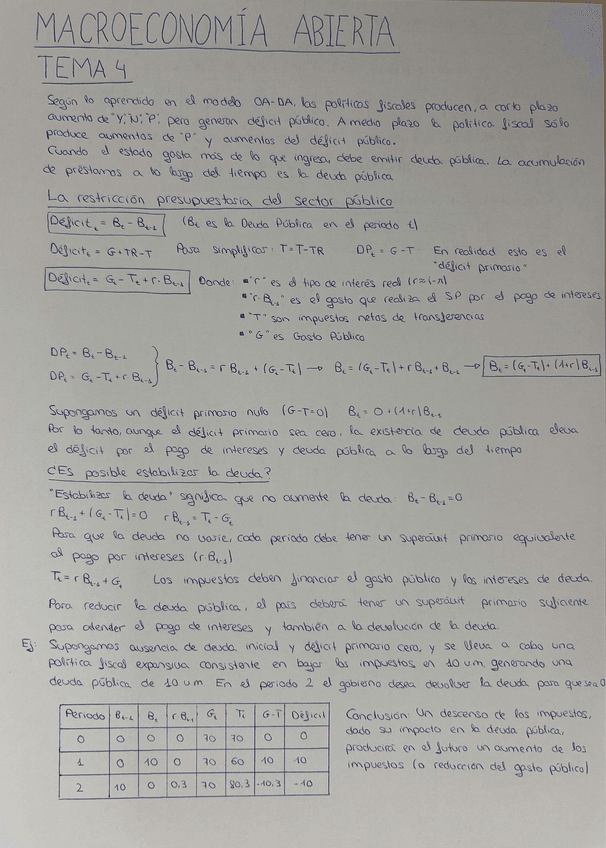 MACROECONOMÍA ABIERTA
TEMA 4
Según lo aprendido en el modelo OA-DA, las políticas fiscales producen, a corto plazo
aumento de "Y", "N", "P", pero generan déficit público. A medio plazo la política fiscal sólo
produce aumentos de "P" y aumentos del déficit público.
Cuando el estado gasta más de lo que ingresa, debe emitir deuda pública. La acumulación
de préstamos a lo largo del tiempo es la deuda pública
La restricción presupuestaria del sector público
Déficit_t = B_t - B_t-1 (B_t es la Deuda Pública en el periodo t)
Déficit_t = G + TR - T Para simplificar: T = T - TR DP_t = G - T En realidad esto es el
"déficit primario"
Déficit_t = G_t - T_t + r·B_t-1 Donde: • "r" es el tipo de interés real (r≈i-π)
• "r·B_t-1" es el gasto que realiza el SP por el pago de intereses
• "T" son impuestos netos de transferencias
• "G" es Gasto Público
DP_t = B_t - B_t-1
DP_t = G_t - T_t + r B_t-1 } B_t - B_t-1 = r B_t-1 + (G_t - T_t) → B_t = (G_t - T_t) + r B_t-1 + B_t-1 → B_t = (G_t - T_t) + (1+r) B_t-1
Supongamos un déficit primario nulo (G-T=0) B_t = 0 + (1+r) B_t-1
Por lo tanto, aunque el déficit primario sea cero, la existencia de deuda pública eleva
el déficit por el pago de intereses y deuda pública a lo largo del tiempo
¿Es posible estabilizar la deuda?
"Estabilizar la deuda" significa que no aumente la deuda: B_t - B_t-1 = 0
r B_t-1 + (G_t - T_t) = 0 r B_t-1 = T_t - G_t
Para que la deuda no varíe, cada periodo debe tener un superávit primario equivalente
al pago por intereses (r·B_t-1)
T_t = r B_t-1 + G_t Los impuestos deben financiar el gasto público y los intereses de deuda.
Para reducir la deuda pública, el país deberá tener un superávit primario suficiente
para atender el pago de intereses y también a la devolución de la deuda.
Ej: Supongamos ausencia de deuda inicial y déficit primario cero, y se lleva a cabo una
política fiscal expansiva consistente en bajar los impuestos en 10 um, generando una
deuda pública de 10 um En el periodo 2 el gobierno desea devolver la deuda para que sea 0
Periodo B_t-1 B_t r B_t-1 G_t T_t G-T Déficit
0 0 0 0 70 70 0 0
1 0 10 0 70 60 10 10
2 10 0 0,3 70 80,3 -10,3 -10
Conclusión: Un descenso de los impuestos,
dado su impacto en la deuda pública,
producirá en el futuro un aumento de los
impuestos (o reducción del gasto público)